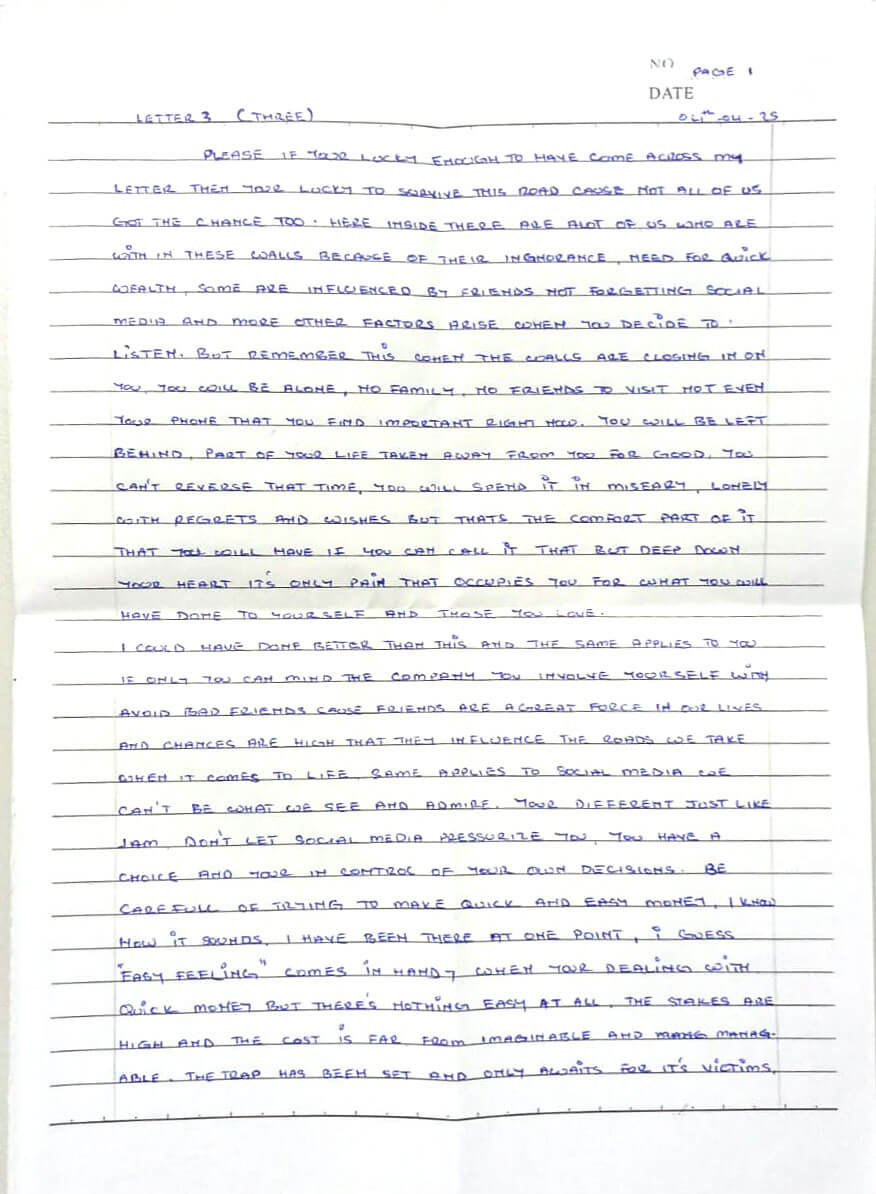 NO PAGE 1
DATE
LETTER 3 (THREE) 04th-04-25
PLEASE IF YOUR LUCKY ENOUGH TO HAVE COME ACROSS MY
LETTER THEN YOUR LUCKY TO SURVIVE THIS ROAD CAUSE NOT ALL OF US
GOT THE CHANCE TOO. HERE INSIDE THERE ARE ALOT OF US WHO ARE
WITH IN THESE WALLS BECAUSE OF THEIR INGNORANCE, NEED FOR QUICK
WEALTH, SOME ARE INFLUENCED BY FRIENDS NOT FORGETTING SOCIAL
MEDIA AND MORE OTHER FACTORS ARISE WHEN YOU DECIDE TO.
LISTEN. BUT REMEMBER THIS WHEN THE WALLS ARE CLOSING IN ON
YOU, YOU WILL BE ALONE, NO FAMILY, NO FRIENDS TO VISIT NOT EVEN
YOUR PHONE THAT YOU FIND IMPORTANT RIGHT NOW. YOU WILL BE LEFT
BEHIND, PART OF YOUR LIFE TAKEN AWAY FROM YOU FOR GOOD, YOU
CAN'T REVERSE THAT TIME, YOU WILL SPEND IT IN MISEARY, LONELY
WITH REGRETS AND WISHES BUT THATS THE COMFORT PART OF IT
THAT YOU WILL HAVE IF YOU CAN CALL IT THAT BUT DEEP DOWN
YOUR HEART IT'S ONLY PAIN THAT OCCUPIES YOU FOR WHAT YOU WILL
HAVE DONE TO YOURSELF AND THOSE YOU LOVE.
I COULD HAVE DONE BETTER THAN THIS AND THE SAME APPLIES TO YOU
IF ONLY YOU CAN MIND THE COMPANY YOU INVOLVE YOURSELF WITH
AVOID BAD FRIENDS CAUSE FRIENDS ARE A GREAT FORCE IN OUR LIVES
AND CHANCES ARE HIGH THAT THEY INFLUENCE THE ROADS WE TAKE
WHEN IT COMES TO LIFE, SAME APPLIES TO SOCIAL MEDIA WE
CAN'T BE WHAT WE SEE AND ADMIRE. YOUR DIFFERENT JUST LIKE
IAM, DON'T LET SOCIAL MEDIA PRESSURIZE YOU, YOU HAVE A
CHOICE AND YOUR IN CONTROL OF YOUR OWN DECISIONS. BE
CAREFULL OF TRYING TO MAKE QUICK AND EASY MONEY, I KNOW
HOW IT SOUNDS, I HAVE BEEN THERE AT ONE POINT, I GUESS
"EASY FEELING" COMES IN HANDY WHEN YOUR DEALING WITH
QUICK MONEY BUT THERE'S NOTHING EASY AT ALL. THE STAKES ARE
HIGH AND THE COST IS FAR FROM IMAGINABLE AND MANAG-
ABLE. THE TRAP HAS BEEN SET AND ONLY AWAITS FOR IT'S VICTIMS.